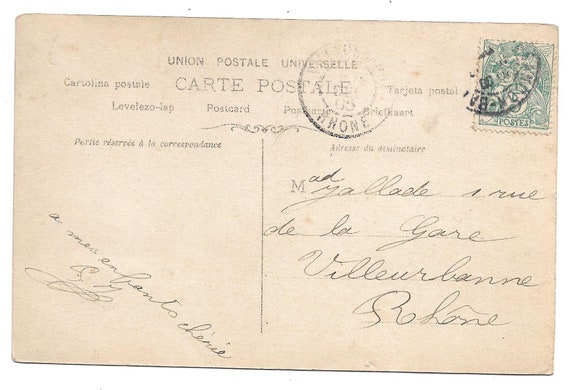 UNION POSTALE UNIVERSELLE
Cartolina postale CARTE POSTALE Tarjeta postal
Levelezo-lap Postcard Postkarte Briefkaart
Partie réservée à la correspondance
Adresse du destinataire
RHONE
05
POSTES
Mad Jallade 1 rue
de la Gare
Villeurbanne
Rhône
a mes enfants chérie